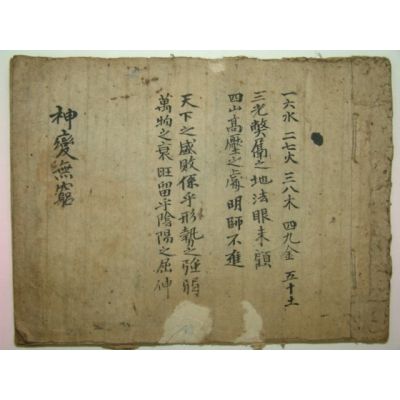 一六水 二七火 三八木 四九金 五十土
三光弊屬之地法眼未顧
四山高壓之處明師不進
天下之盛敗係乎形勢之强弱
萬物之衰旺留乎陰陽之屈伸
神變無窮